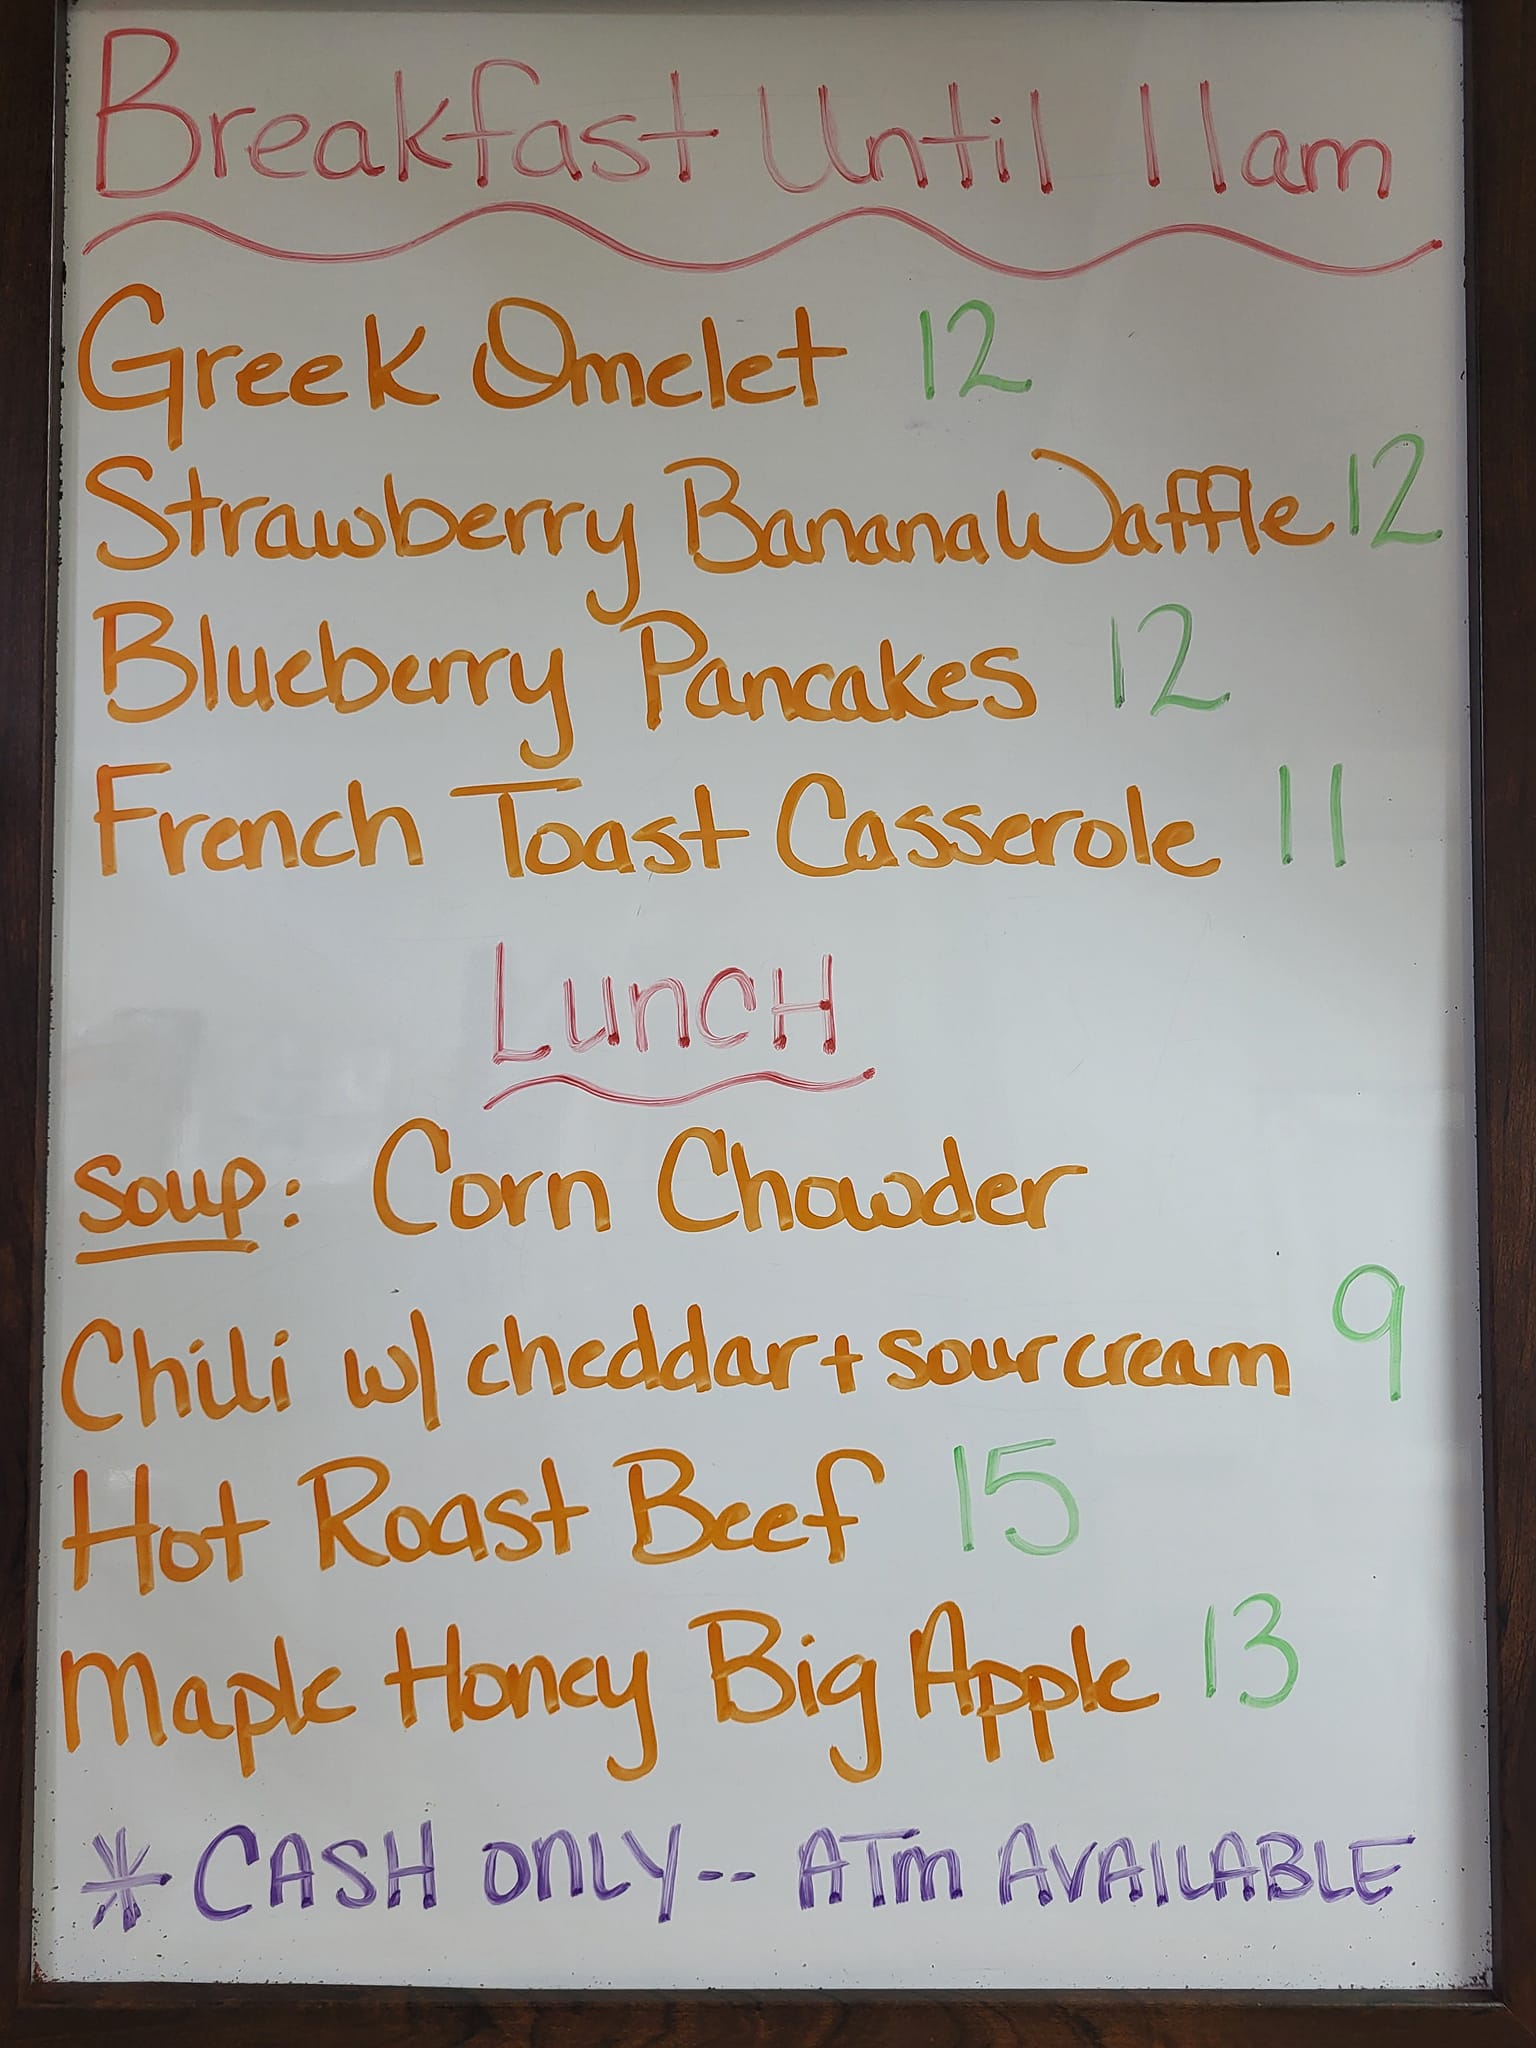 Breakfast Until 11am
Greek Omelet 12
Strawberry Banana Waffle 12
Blueberry Pancakes 12
French Toast Casserole 11
LuncH
Soup: Corn Chowder
Chili w/ cheddar + sour cream 9
Hot Roast Beef 15
Maple Honey Big Apple 13
* CASH ONLY -- ATM AVAILABLE